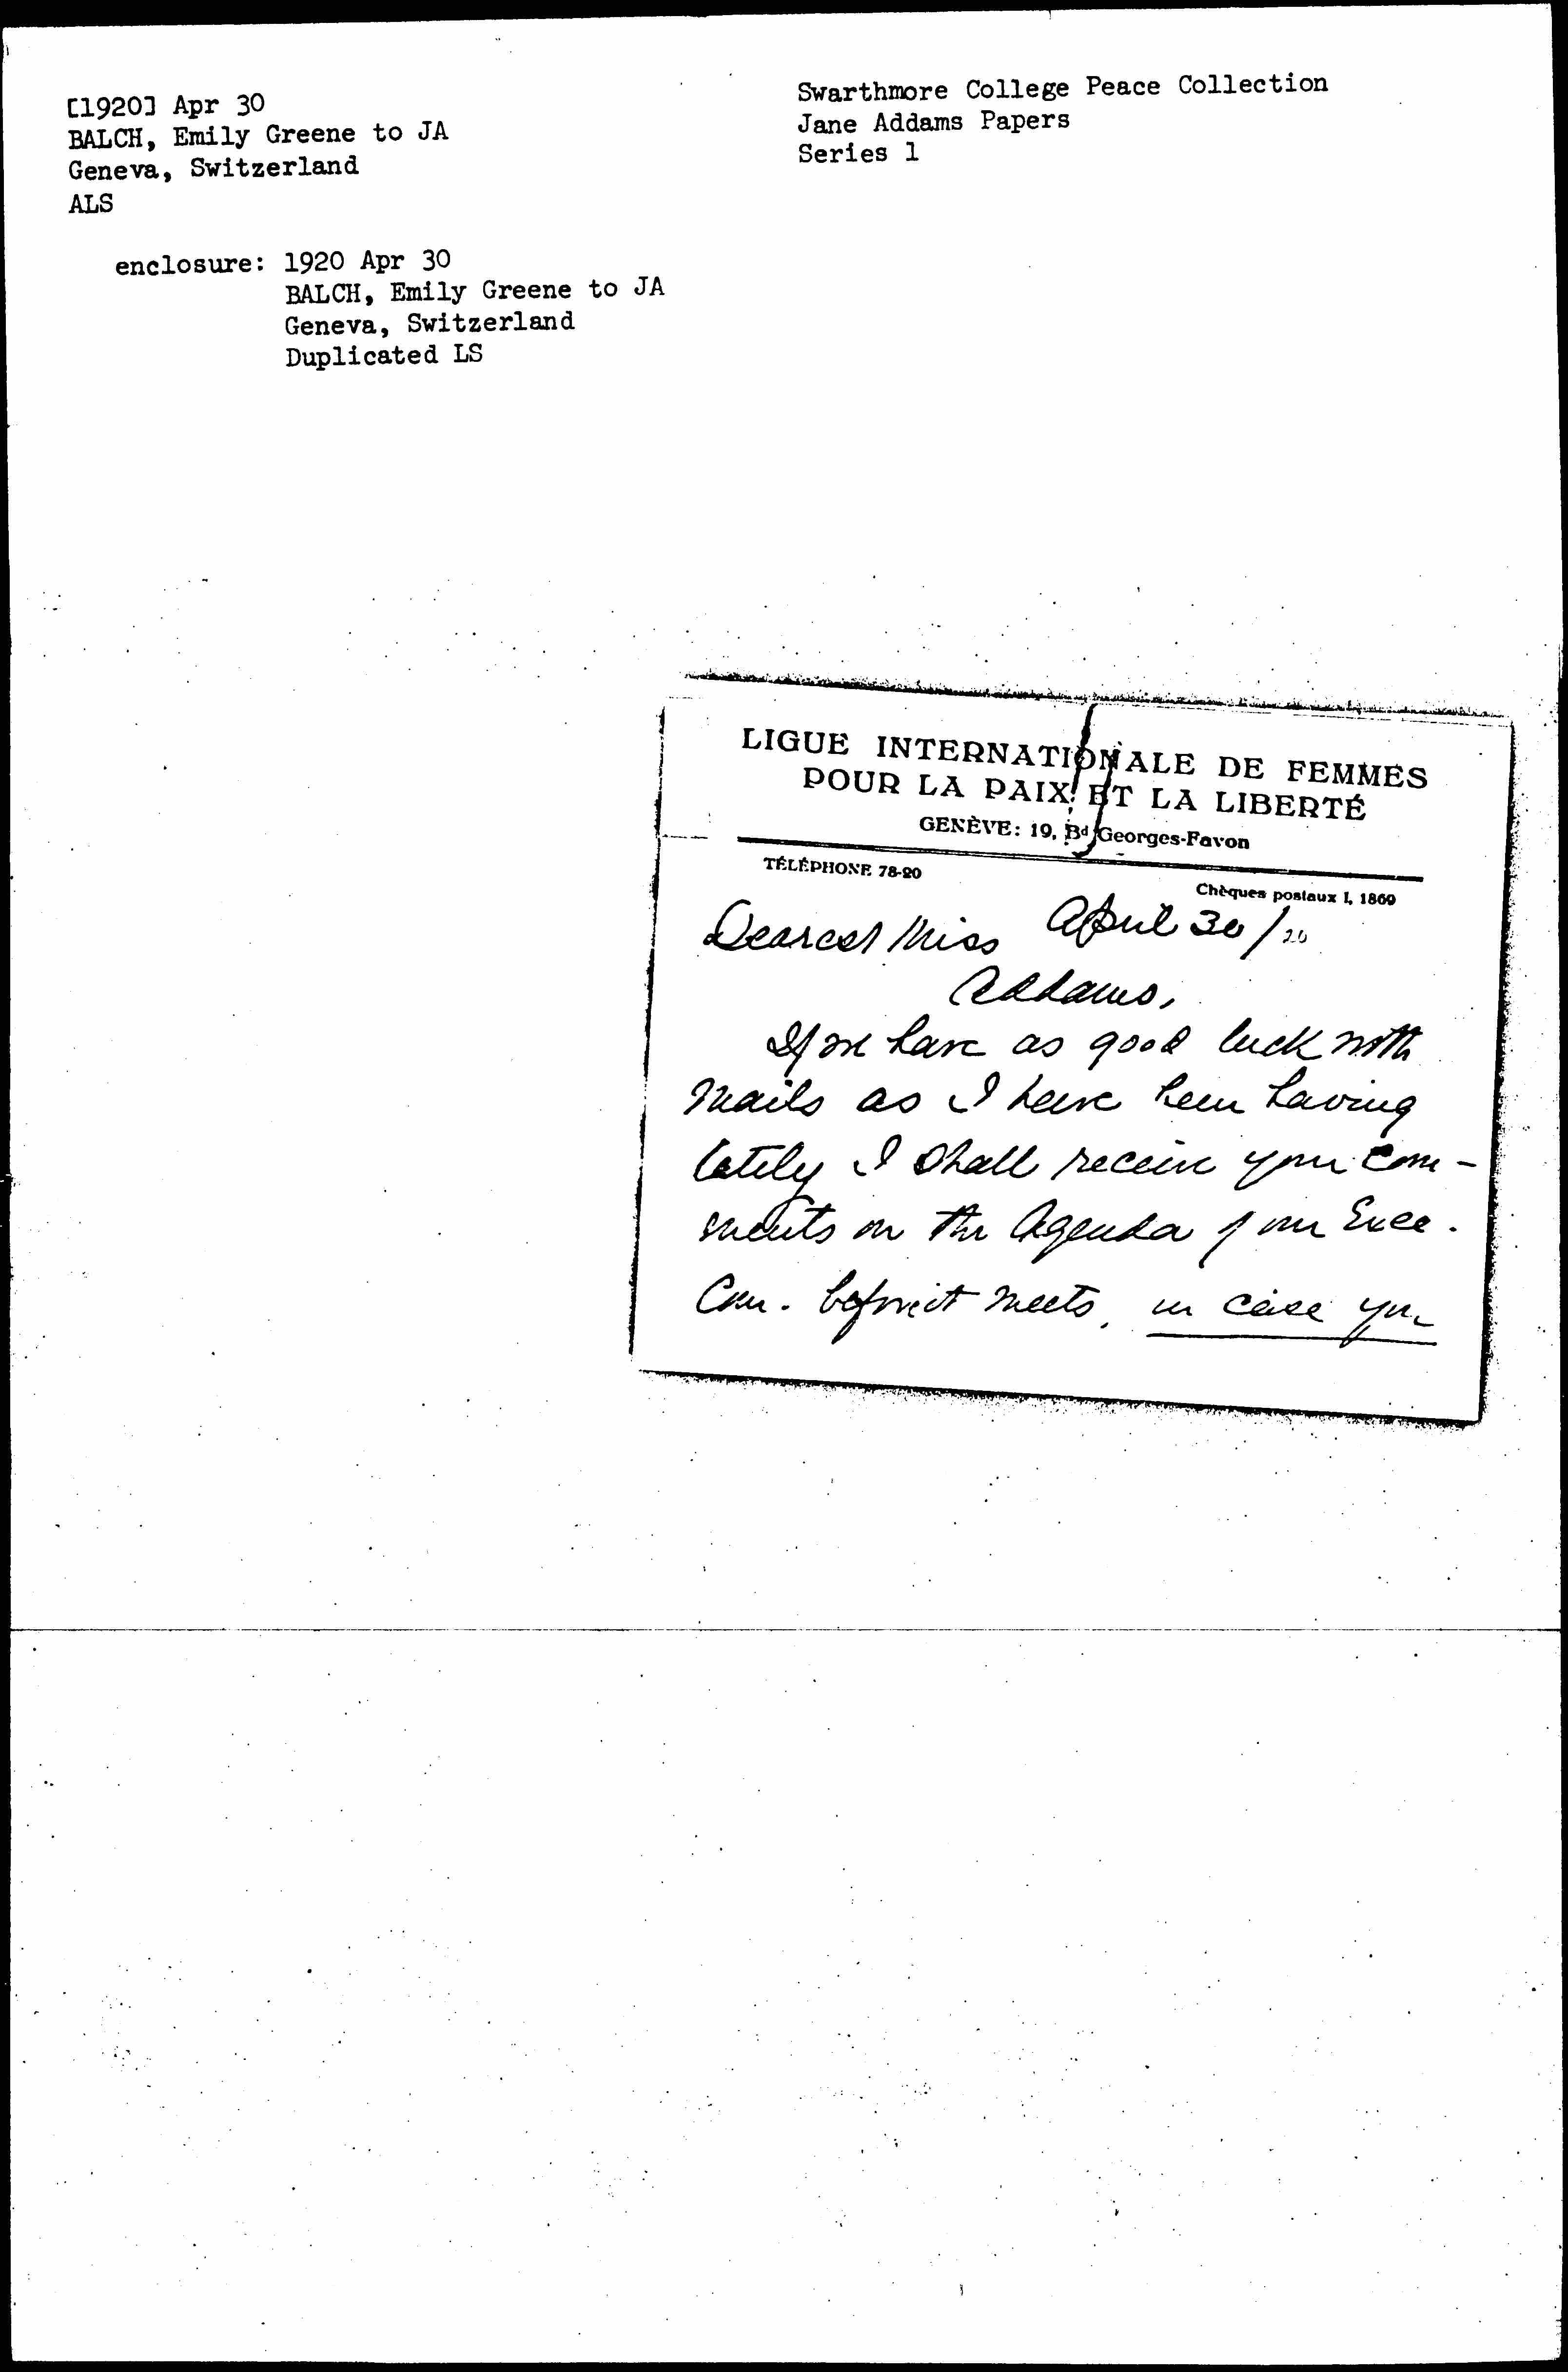 [1920] Apr 30
BALCH, Emily Greene to JA
Geneva, Switzerland
ALS
enclosure: 1920 Apr 30
BALCH, Emily Greene to JA
Geneva, Switzerland
Duplicated LS
Swarthmore College Peace Collection
Jane Addams Papers
Series 1
LIGUE INTERNATIONALE DE FEMMES
POUR LA PAIX ET LA LIBERTÉ
GENÈVE: 19, Bd Georges-Favon
TÉLÉPHONE 78-20
Chèques postaux I, 1869
April 30/20
Dearest Miss
Addams,
If we have as good luck with
mails as I have been having
lately I shall receive your com-
ments on the Agenda of our Exec.
Com. before it meets, in case you